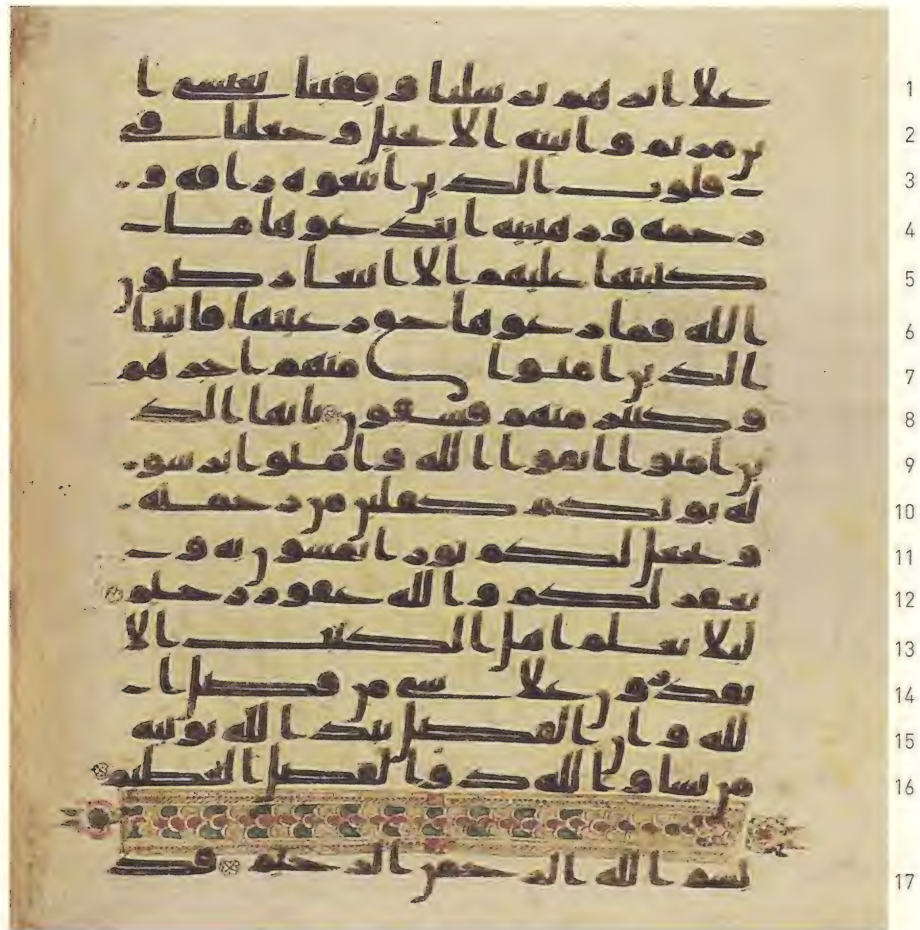 1 علا اثرهم برسلنا وقفينا بعيسى ا
2 بن مريم واتينه الانجيل وجعلنا في
3 قلوب الذين اتبعوه رافه و
4 رحمه ورهبنيه ابتدعوها ما
5 كتبنها عليهم الا ابتغا رضون
6 الله فما رعوها حق رعيتها فاتينا
7 الذين امنوا منهم اجرهم
8 وكثير منهم فسقون يايها الذ
9 ين امنوا اتقوا الله وامنوا برسو
10 له يوتكم كفلين من رحمته
11 ويجعل لكم نورا تمشون به و
12 يغفر لكم والله غفور رحيم
13 ليلا يعلم اهل الكتب الا
14 يقدرون علا شي من فضل ا
15 لله وان الفضل بيد الله يوتيه
16 من يشا والله ذو الفضل العظيم
17 بسم الله الرحمن الرحيم قد